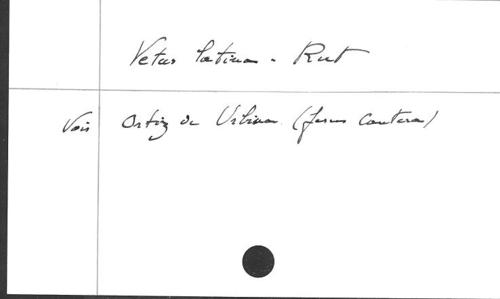 Vetus latina - Rut
Voir Ortiz de Urbina (Jesus Cantera)